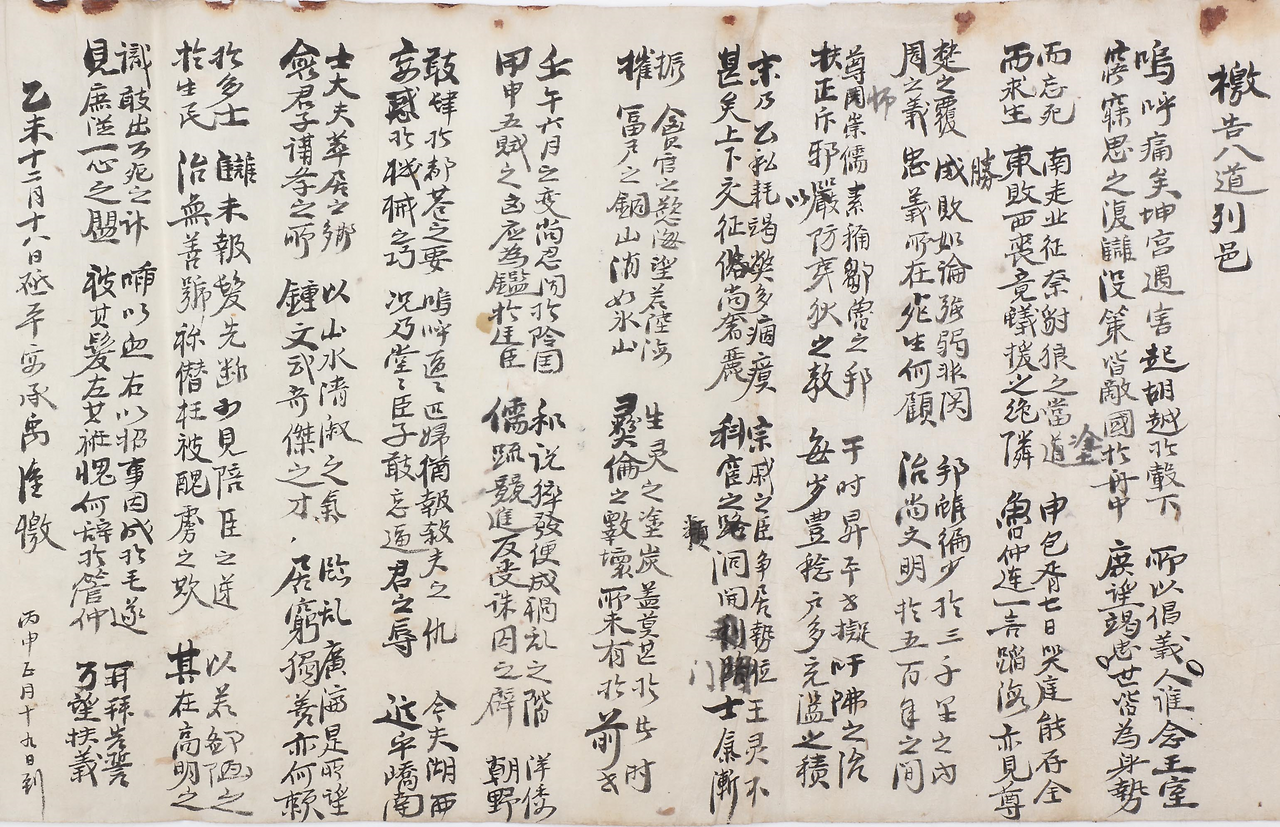 檄告八道列邑
嗚呼痛矣坤宮遇害起胡越於轂下 所以倡義人誰念王室
寤寐思之復讎沒策皆敵國於舟中 庶望竭忠世皆為身勢
而忘死 南走北征奈豺狼之當道塗 申包胥七日哭庭能存全
而求生 東敗西喪竟蟻援之絶隣 魯仲連一言蹈海亦見尊
勝
楚之覆 成敗如論强弱非関 邦雖褊少於三千里之內
周之義 忠義所在死生何顧 治尚文明於五百年之間
師
尊周崇儒素稱鄒魯之邦 于时昇平世擬吁咈之治
扶正斥邪以嚴防夷狄之敎 每歲豊稔戶多充溢之積
末乃公私耗竭獘多痼瘼 宗戚之臣爭居勢位王灵不
甚矣上下交征俗尚奢麗 科宦之路洞開門士氣漸
振 貪官之慾海望若陸海 生灵之塗炭盖莫甚於此时
摧 富戶之銅山消如氷山 彛倫之斁壞所未有於前世
壬午六月之变尚忍聞於隂囯 和说猝發便成禍乱之階 洋倭
甲申五賊之凶应為鑑於廷臣 儒疏競進反受誅囚之辟 朝野
敢肆於都巷之要 嗚呼匹匹婦猶報殺夫之仇 今夫湖西
妄惑於機械之巧 况乃堂〻臣子敢忘逼君之辱 近乎嶠南
士大夫萃居之鄉 以山水清淑之氣 臨乱廣濟是所望
僉君子講学之所 鍾文武奇傑之才 居窮獨善亦何賴
於多士 讎未報髮先断勿見陪臣之逆 以若鄙陋之
於生民 治無善號称僭枉被醜虜之欺 其在高明之
識敢出万死之計 以血右以招事因成於毛遂 再拜告誓
見庶從一心之盟 被其髮左其袵愧何辞於管仲 万望扶義
乙未十二月十八日砥平安承禹 檄 丙申正月十九日到